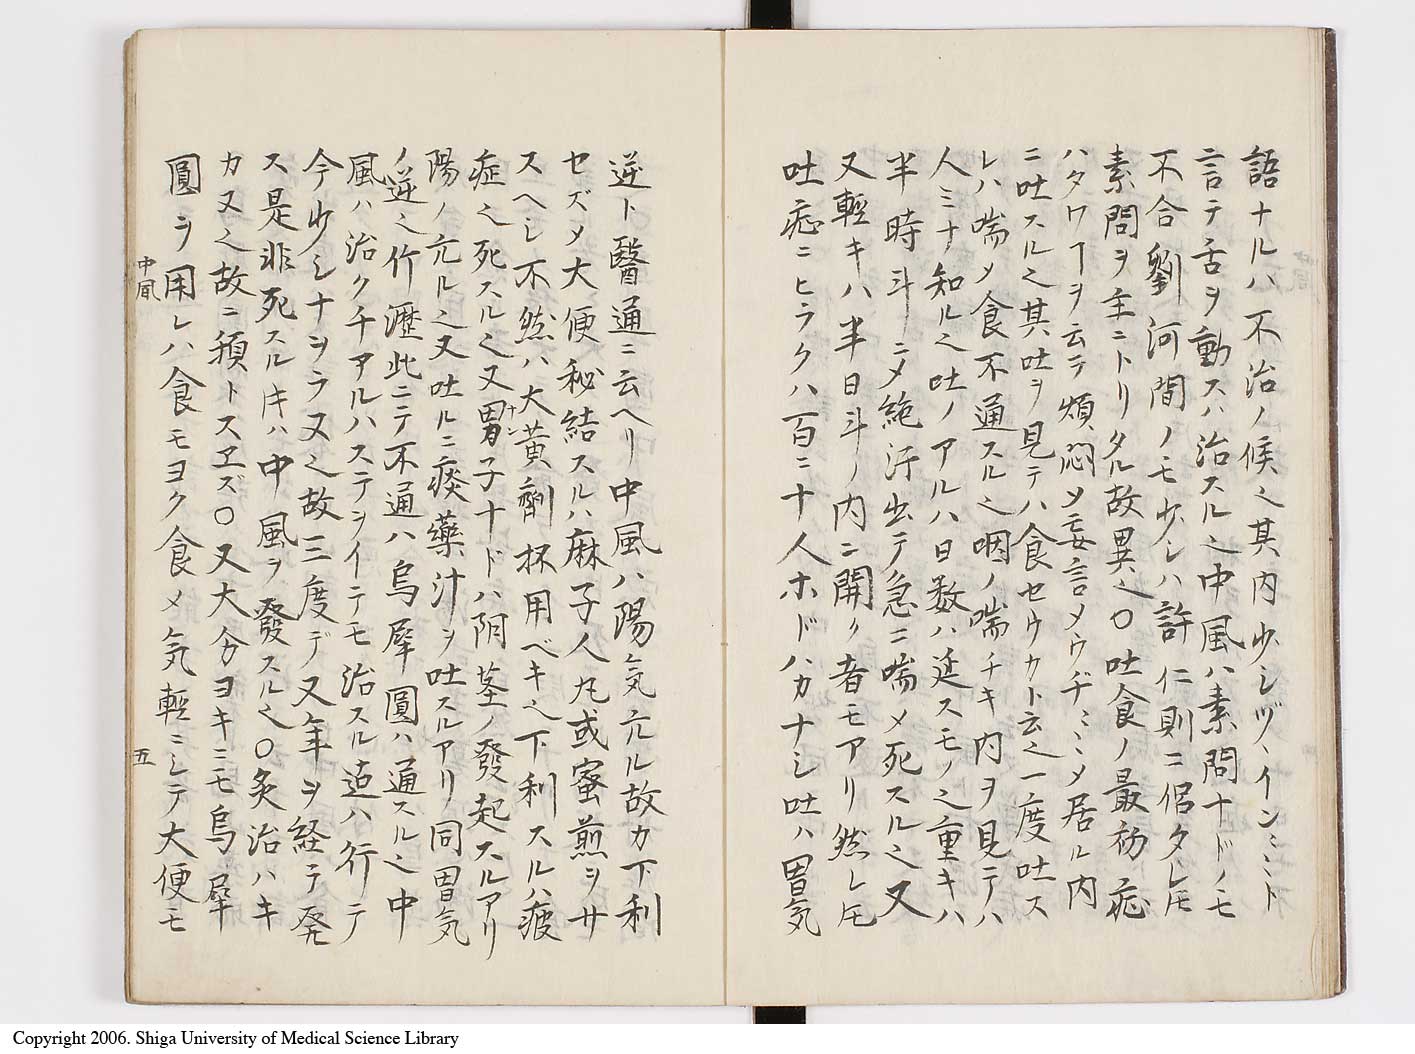 語ナルハ不治ノ候之其内少シヅヽインミヽト
言テ舌ヲ動スハ治スル之中風ハ素問ナドノモ
不合劉河間ノモ少レハ許仁則ニ侶タレ𪜈
素問ヲ主ニトリタル故異之〇吐食ノ最初症
ハタワーヲ云テ煩悶メ妄言メウヂミヽメ居ル内
ニ吐スル之其吐ヲ見テハ食セウカト云之一度吐ス
レハ喘メ食不通スル之咽ノ喘チキ内ヲ見テハ
人ミナ知ル之吐ノアルハ日数ハ延スモノ之重キハ
半時斗ニメ絶汗出テ急ニ喘メ死スル之又
又輕キハ半日斗ノ内ニ開ク者モアリ然レ𪜈
吐症ニヒラクハ百ニ十人ホドハカナシ吐ハ胃気
逆ト醫通ニ云ヘリ中風ハ陽気亢ル故カ下利
セズメ大便秘結スルハ麻子人丸或蜜煎ヲサ
スヘレ不然ハ大黄劑杯用ベキ之下利スルハ疲
症之死スル之又男子ナドハ阴茎ノ發起スルアリ
ナン
陽ノ亢ル之又吐ルニ痰藥汁ヲ吐スルアリ同胃気
ノ逆之竹瀝此ニテ不通ハ烏犀圓ハ通スル之中
風ハ治クチアルハステヲイテモ治スル迠ハ行テ
今少シナヲラ又之故三度デ又年ヲ経テ発
ス是非死スルキハ中風ヲ發スル之〇灸治ハキ
カ又之故ニ預トスヱズ〇又大方ヨキニモ烏犀
圓ヲ用レハ食モヨク食メ気輕ニシテ大便モ
中風
五
Copyright 2006. Shiga University of Medical Science Library